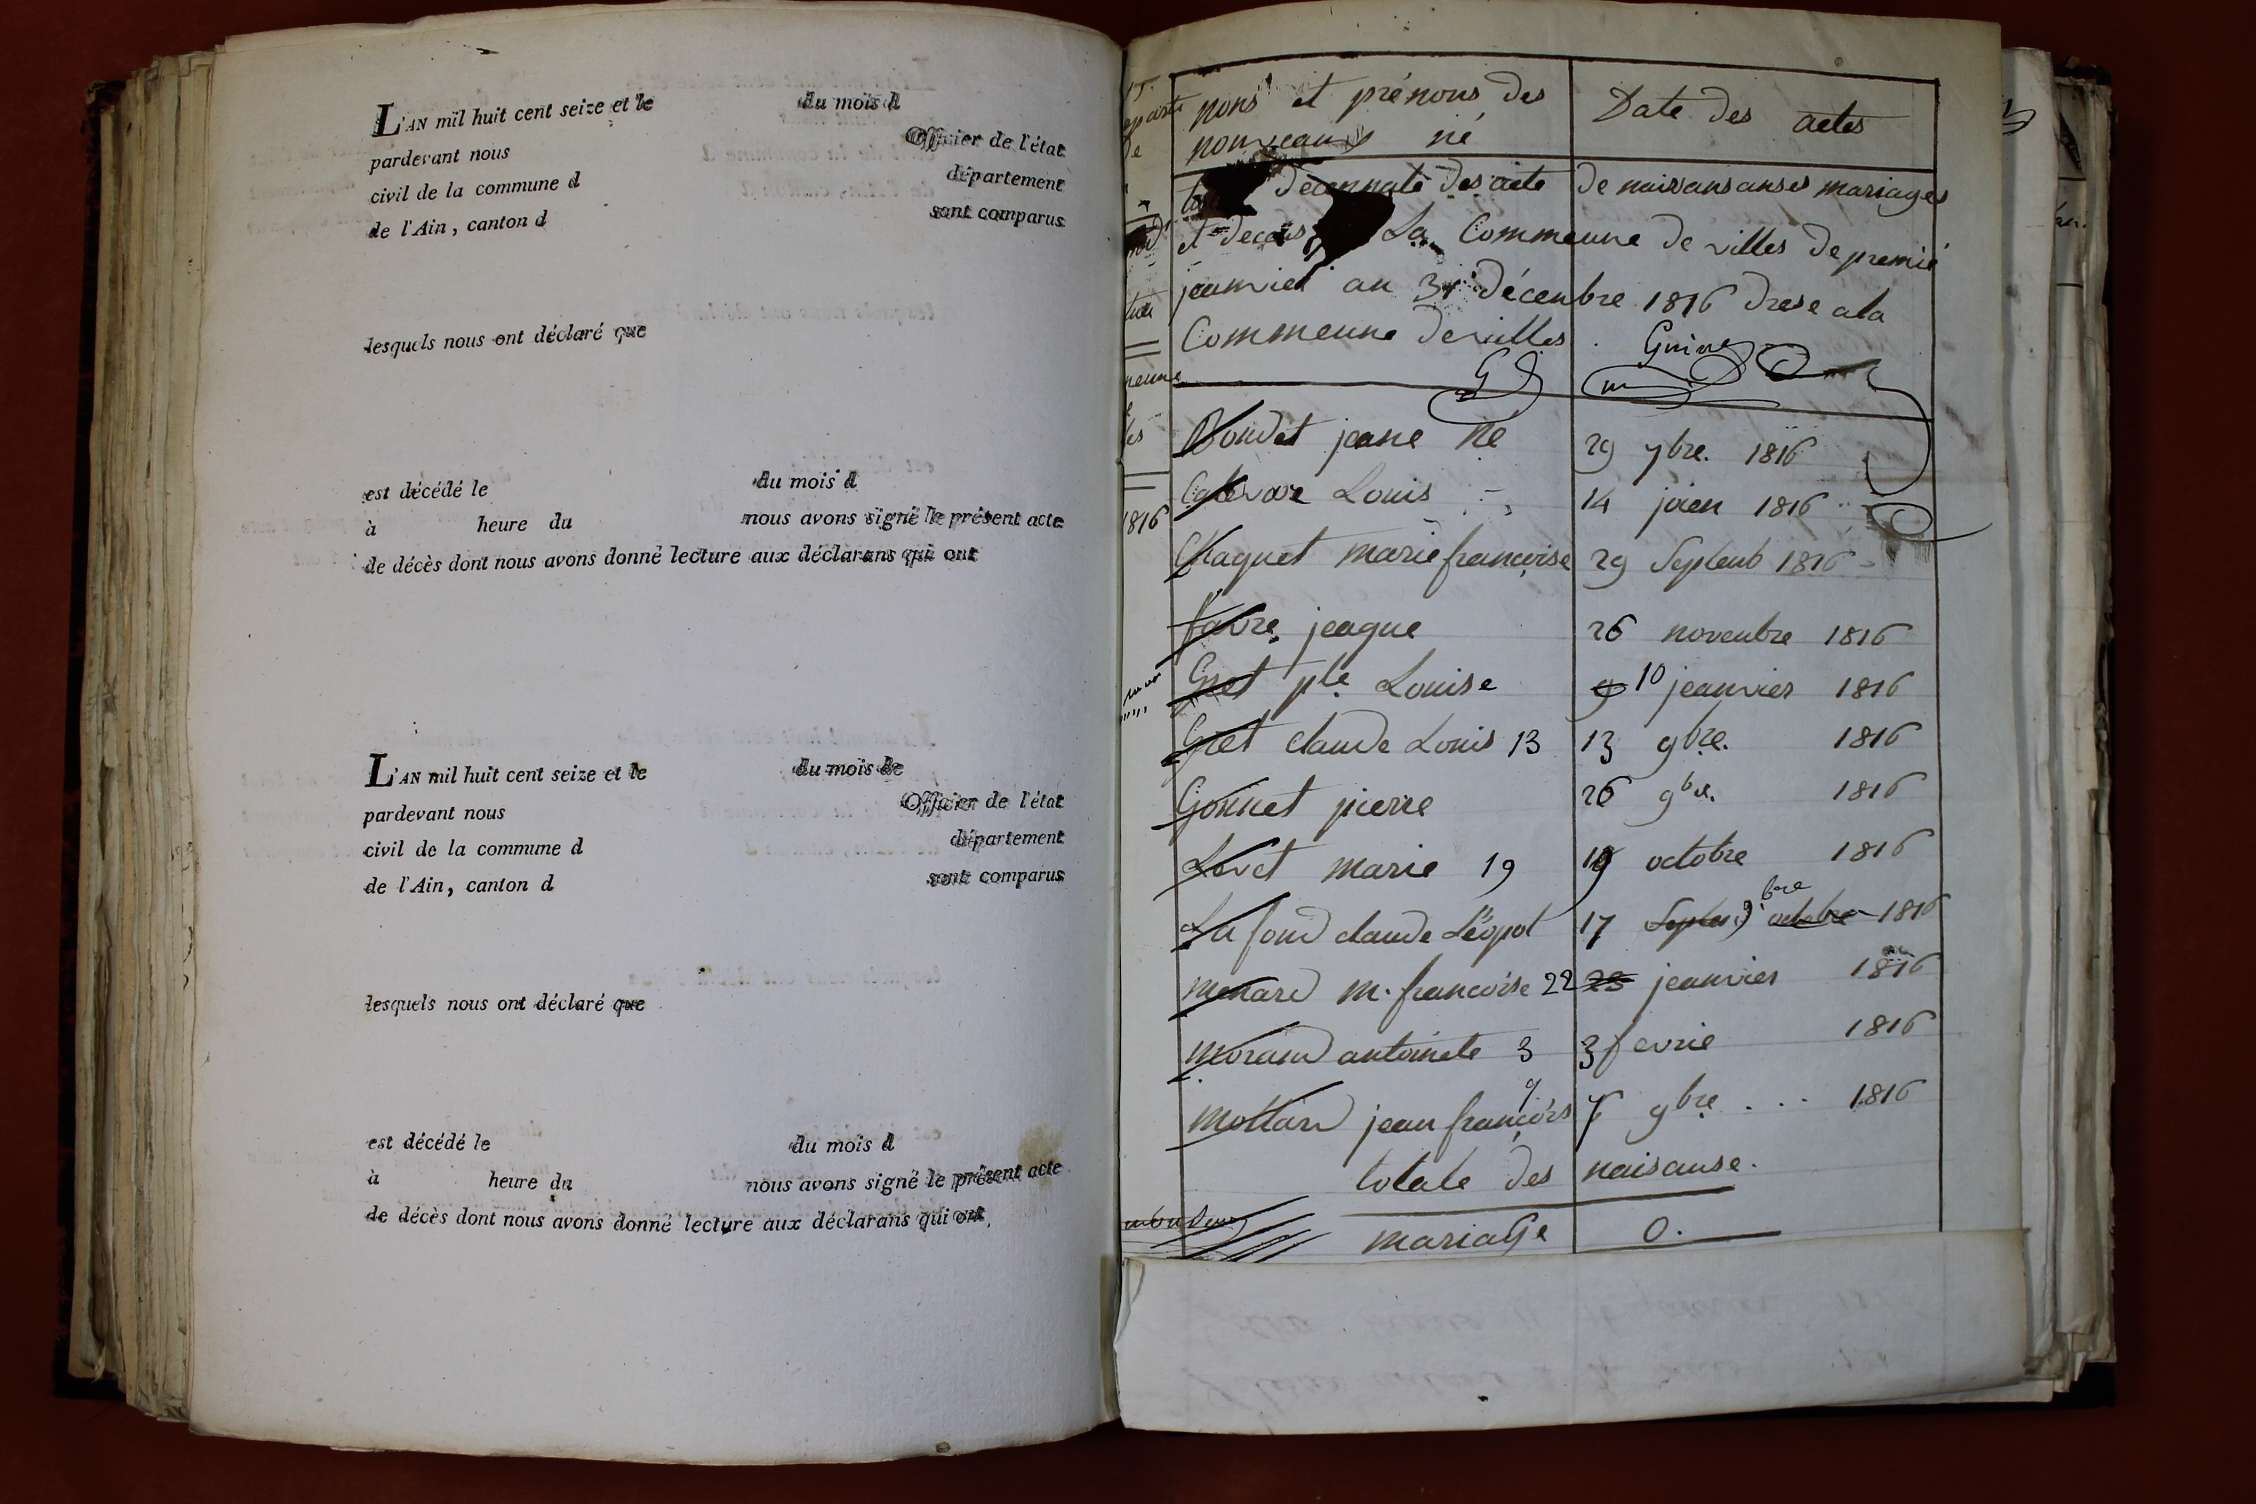 L'AN mil huit cent seize et le du mois d
pardevant nous Officier de l'état
civil de la commune d département
de l'Ain, canton d sont comparus
lesquels nous ont déclaré que
est décédé le du mois d
à heure du nous avons signé le présent acte
de décès dont nous avons donné lecture aux déclarans qui ont
L'AN mil huit cent seize et le du mois de
pardevant nous Officier de l'état
civil de la commune d département
de l'Ain, canton d sont comparus
lesquels nous ont déclaré que
est décédé le du mois d
à heure du nous avons signé le présent acte
de décès dont nous avons donné lecture aux déclarans qui ont,
nons et prénons des Date des actes
nouveaux né
décennale des acte de naissansanses mariages
et deces La Commeune de villes de premié
jeanvier au 31 décenbre 1816 drese a la
Commeune de villes
Boudet jeane né 29 7bre. 1816
Louis 14 juien 1816
Claquet marie francoise 29 Septenb 1816
favre jeaque 26 novenbre 1816
Gret Louise 9 10 jeanvier 1816
Gret claude Louis 13 13 9bre. 1816
Gonnet pierre 26 9bre. 1816
Levet marie 19 19 octobre 1816
Lafond claude Léopol 17 9bre octobre 1816
menard m. francoise 22 23 jeanvier 1816
morand antoinete 3 3 fevrie 1816
mollard jean francois 9bre 1816
totale des naisanse.
mariage 0.
1816